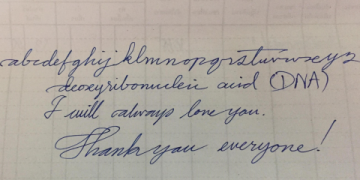 abcdefghijklmnopqrstuvwxyz
deoxyribonucleic acid (DNA)
I will always love you.
Thank you everyone!